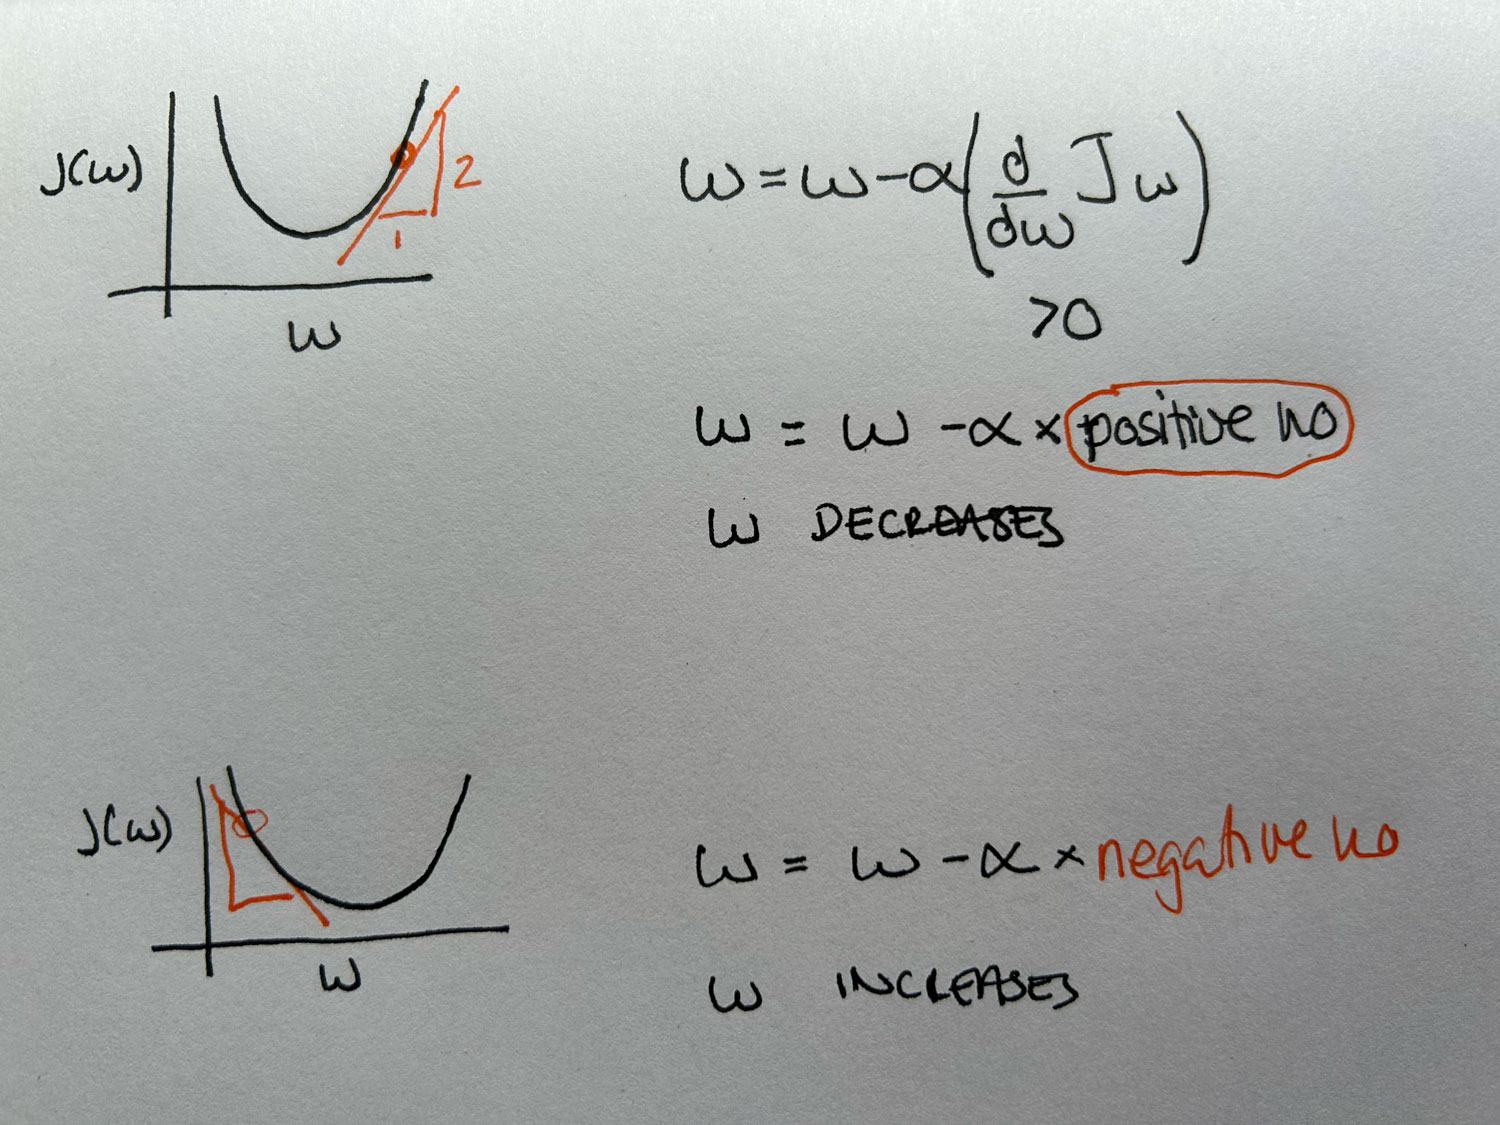 J(w)
2
1
w
w = w - α(d/dw J w)
>0
w = w - α × positive no
w DECREASES
J(w)
w
w = w - α × negative no
w INCREASES